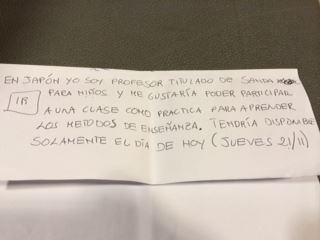 EN JAPÓN YO SOY PROFESOR TITULADO DE SANDA
PARA NIÑOS Y ME GUSTARÍA PODER PARTICIPAR
1B
A UNA CLASE COMO PRACTICA PARA APRENDER
LOS METODOS DE ENSEÑANZA. TENDRÍA DISPONIBLE
SOLAMENTE EL DÍA DE HOY (JUEVES 21/11)